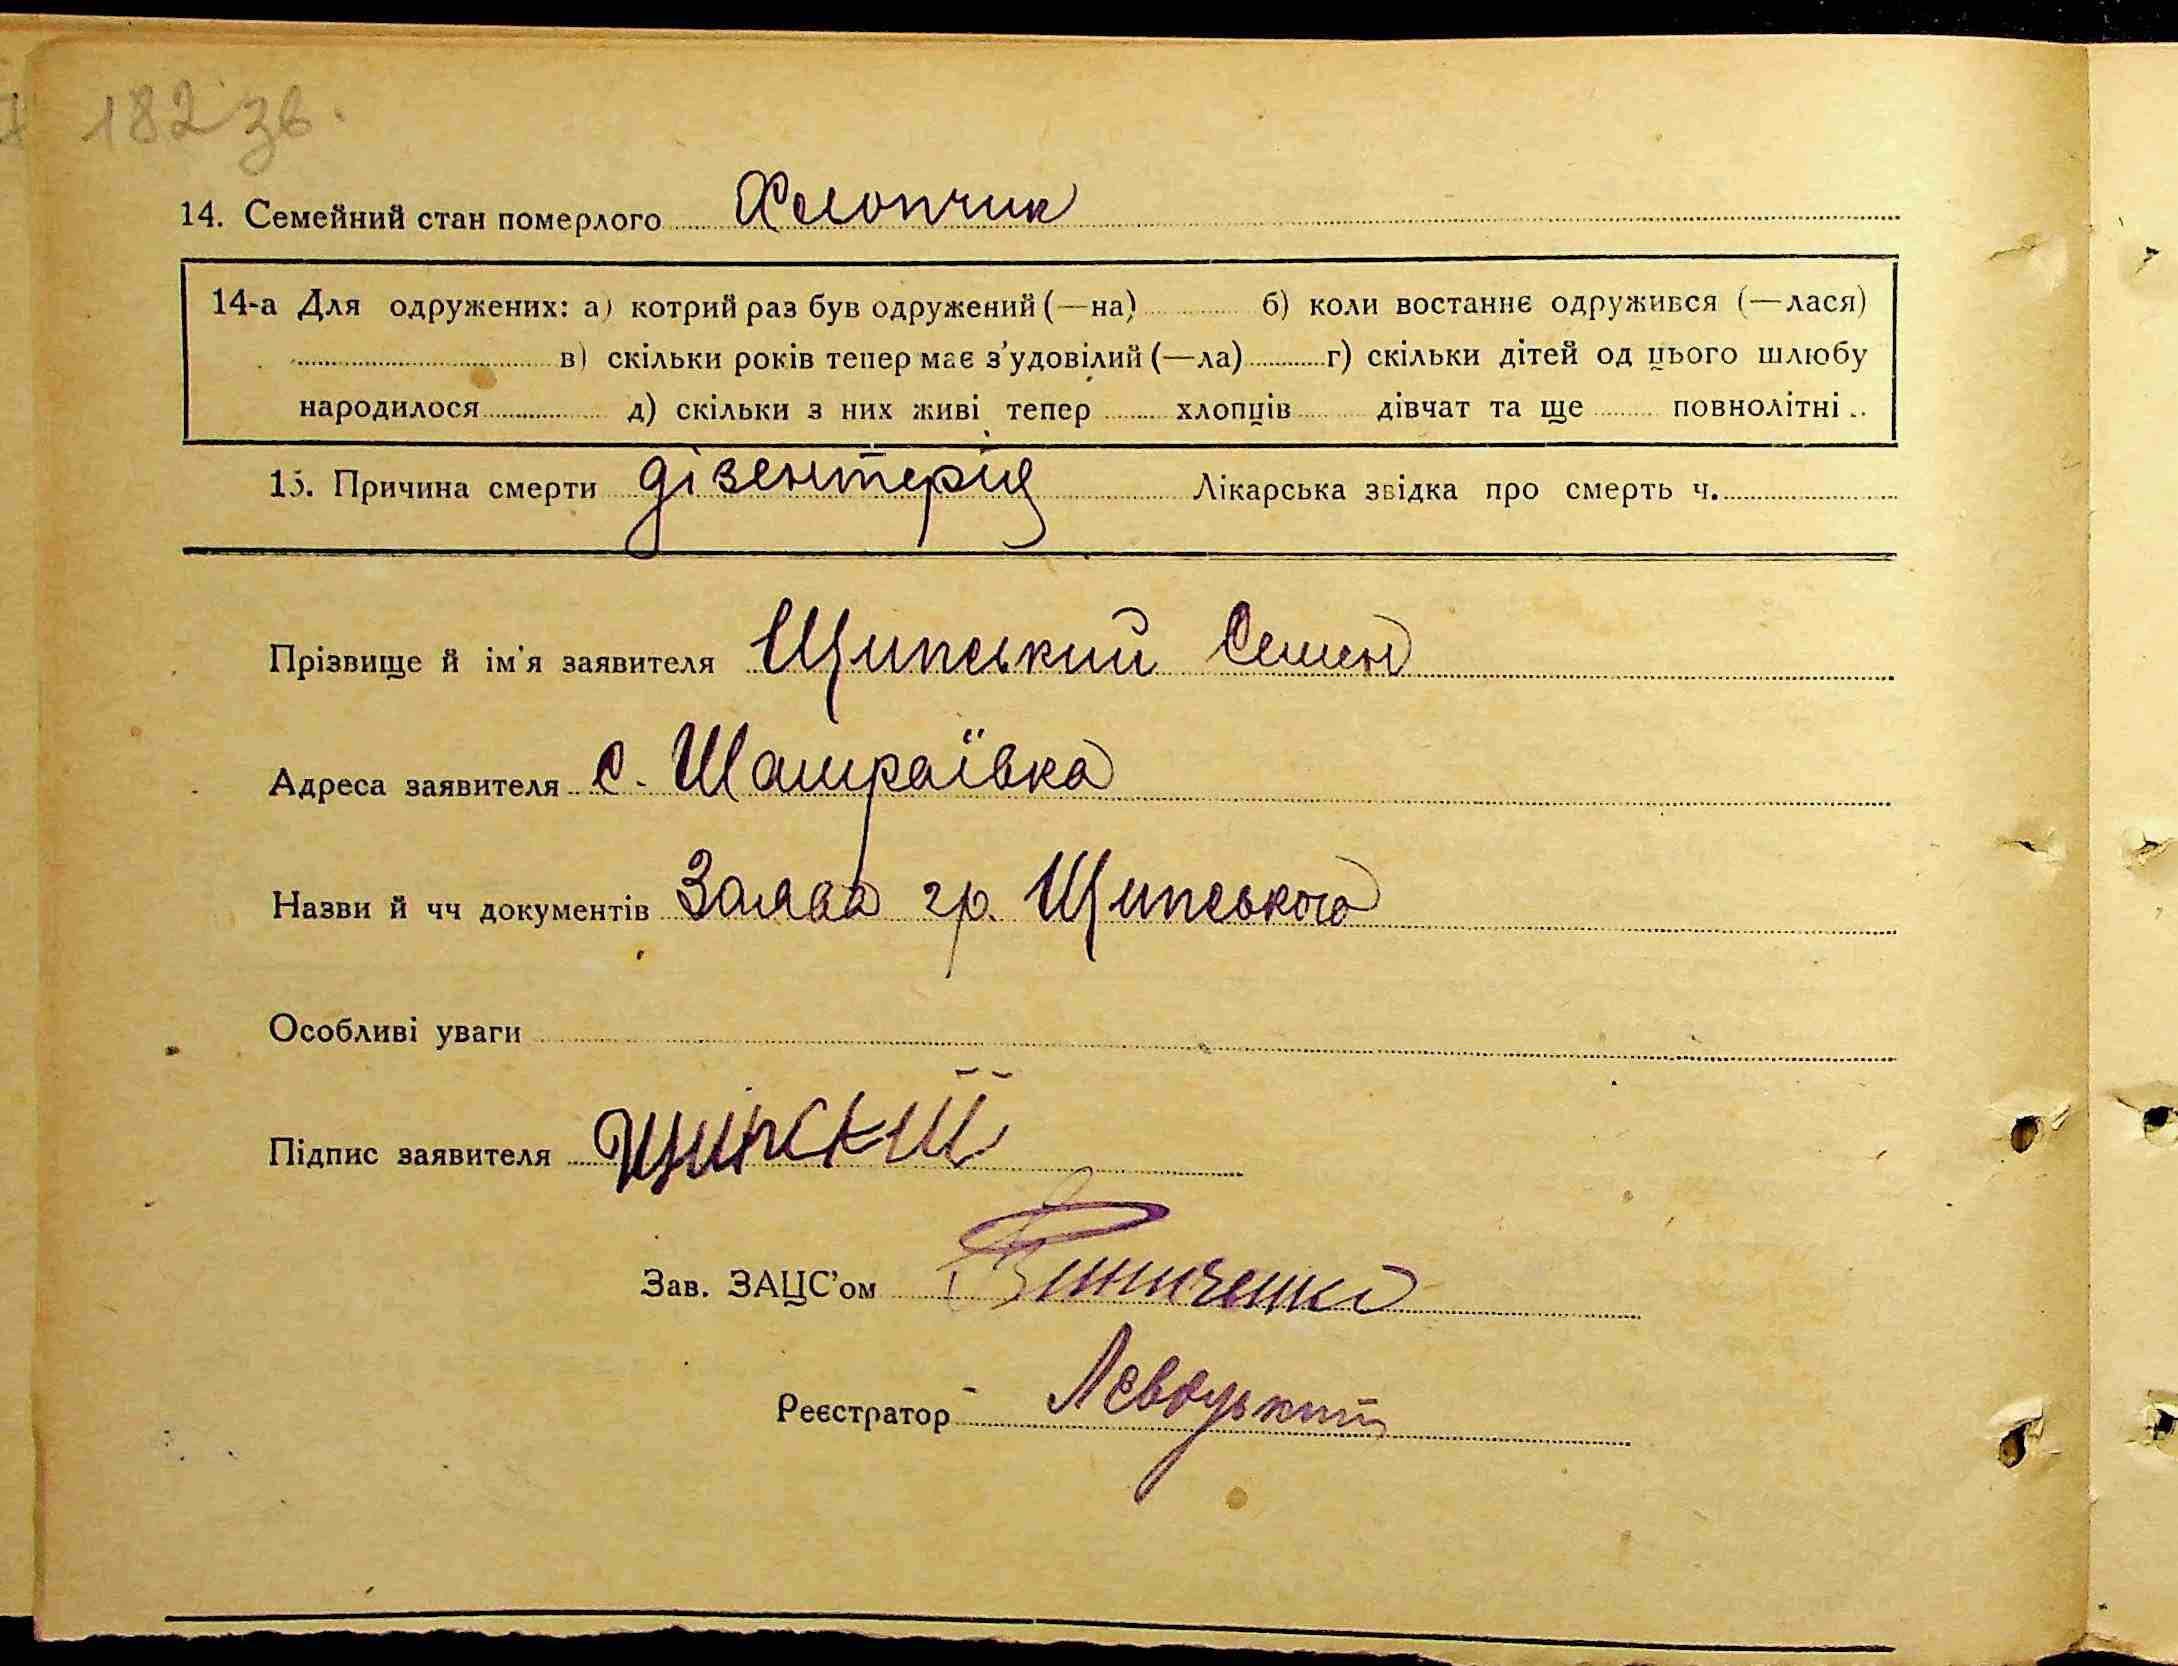 182 зв.
14. Семейний стан померлого Хлопчик
14-а Для одружених: а) котрий раз був одружений (—на) б) коли востаннє одружився (—лася)
в) скільки років тепер має з'удовілий (—ла) г) скільки дітей од цього шлюбу
народилося д) скільки з них живі тепер хлопців дівчат та ще повнолітні
15. Причина смерти дізентерія Лікарська звідка про смерть ч.
Прізвище й ім'я заявителя Щипський Семен
Адреса заявителя с. Шамраївка
Назви й чч документів Заява гр. Щипського
Особливі уваги
Підпис заявителя Щипский
Зав. ЗАЦС'ом Винниченко
Реєстратор